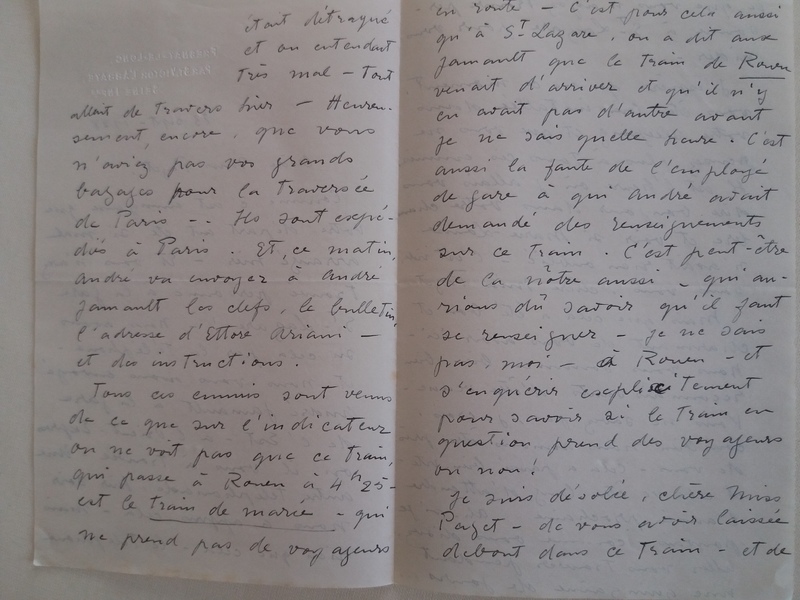 étant détraqué
et on entendant
très mal – Tout
allait de travers hier – Heureu-
sement, encore, que vous
n'aviez pas vos grands
bagages pour la Traversée
de Paris -- Ils sont expé-
diés à Paris. Et, ce matin,
André va envoyer à André
Jamault les clefs, le bulletin,
l'adresse d'Ettore Ariani –
et des instructions.
Tous ces ennuis sont venus
de ce que sur l'indicateur
on ne voit pas que ce Train,
qui passe à Rouen à 4h25 –
est le train de marée – qui
ne prend pas de voyageurs
en route – C'est pour cela aussi
qu'à St Lazare, on a dit aux
Jamault que le Train de Rouen
venait d'arriver et qu'il n'y
en avait pas d'autre avant
je ne sais quelle heure. C'est
aussi la faute de l'employé
de gare à qui André avait
demandé des renseignements
sur ce Train. C'est peut-être
de la nôtre aussi – qui au-
rions dû savoir qu'il faut
se renseigner – je ne sais
pas, moi – à Rouen – et
s'enquérir explicitement
pour savoir si le Train en
question prend des voyageurs
ou non!
Je suis désolée, chère Miss
Paget – de vous avoir laissée
debout dans ce Train – et de